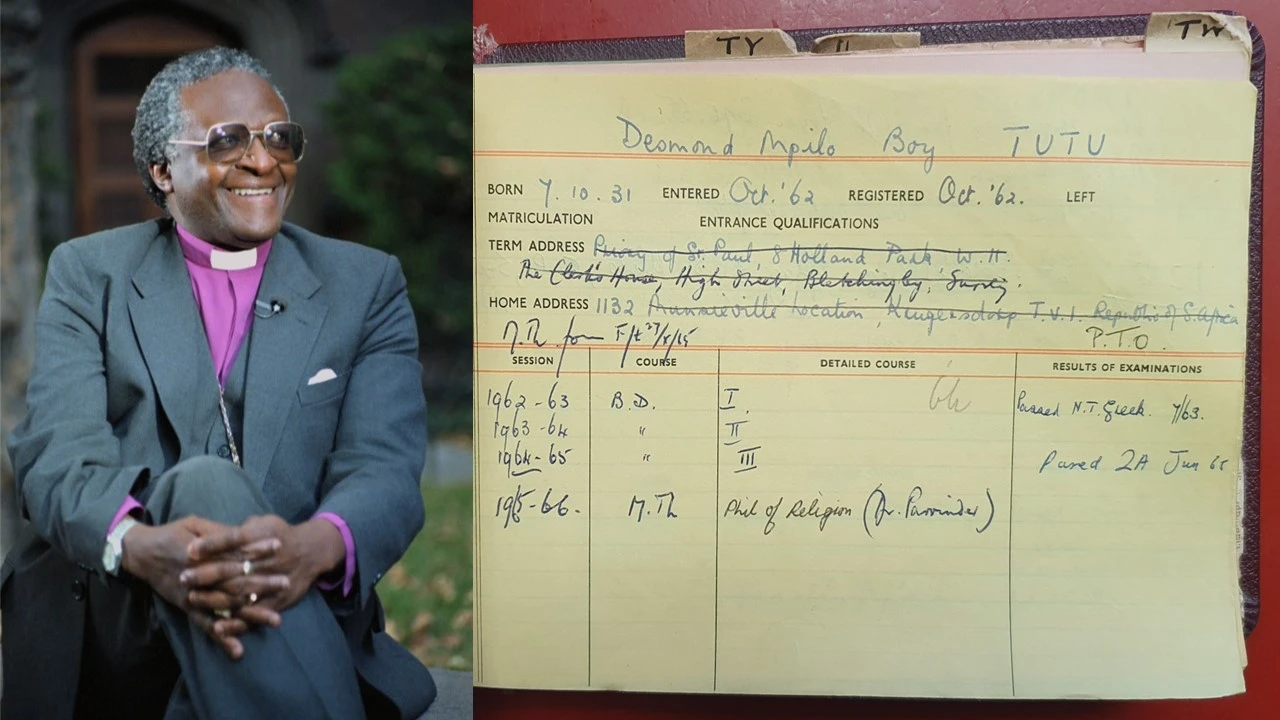 TY TW
Desmond Mpilo Boy TUTU
BORN 7.10.31 ENTERED Oct. '62 REGISTERED Oct. '62. LEFT
MATRICULATION ENTRANCE QUALIFICATIONS
TERM ADDRESS Priory of St. Paul, 8 Holland Park W.11.
The Clerk's House, High Street, Bletchingley, Surrey.
HOME ADDRESS 1132 Munsieville Location, Krugersdorp T.V.1. Republic of S. Africa
M.Th from P.T.O.
SESSION COURSE DETAILED COURSE RESULTS OF EXAMINATIONS
1962-63 B.D. I. Passed N.T. Greek. 7/63.
1963-64 " II
1964-65 " III Passed 2A Jun 65
1965-66. M.Th Phil of Religion (Dr. Parrinder)